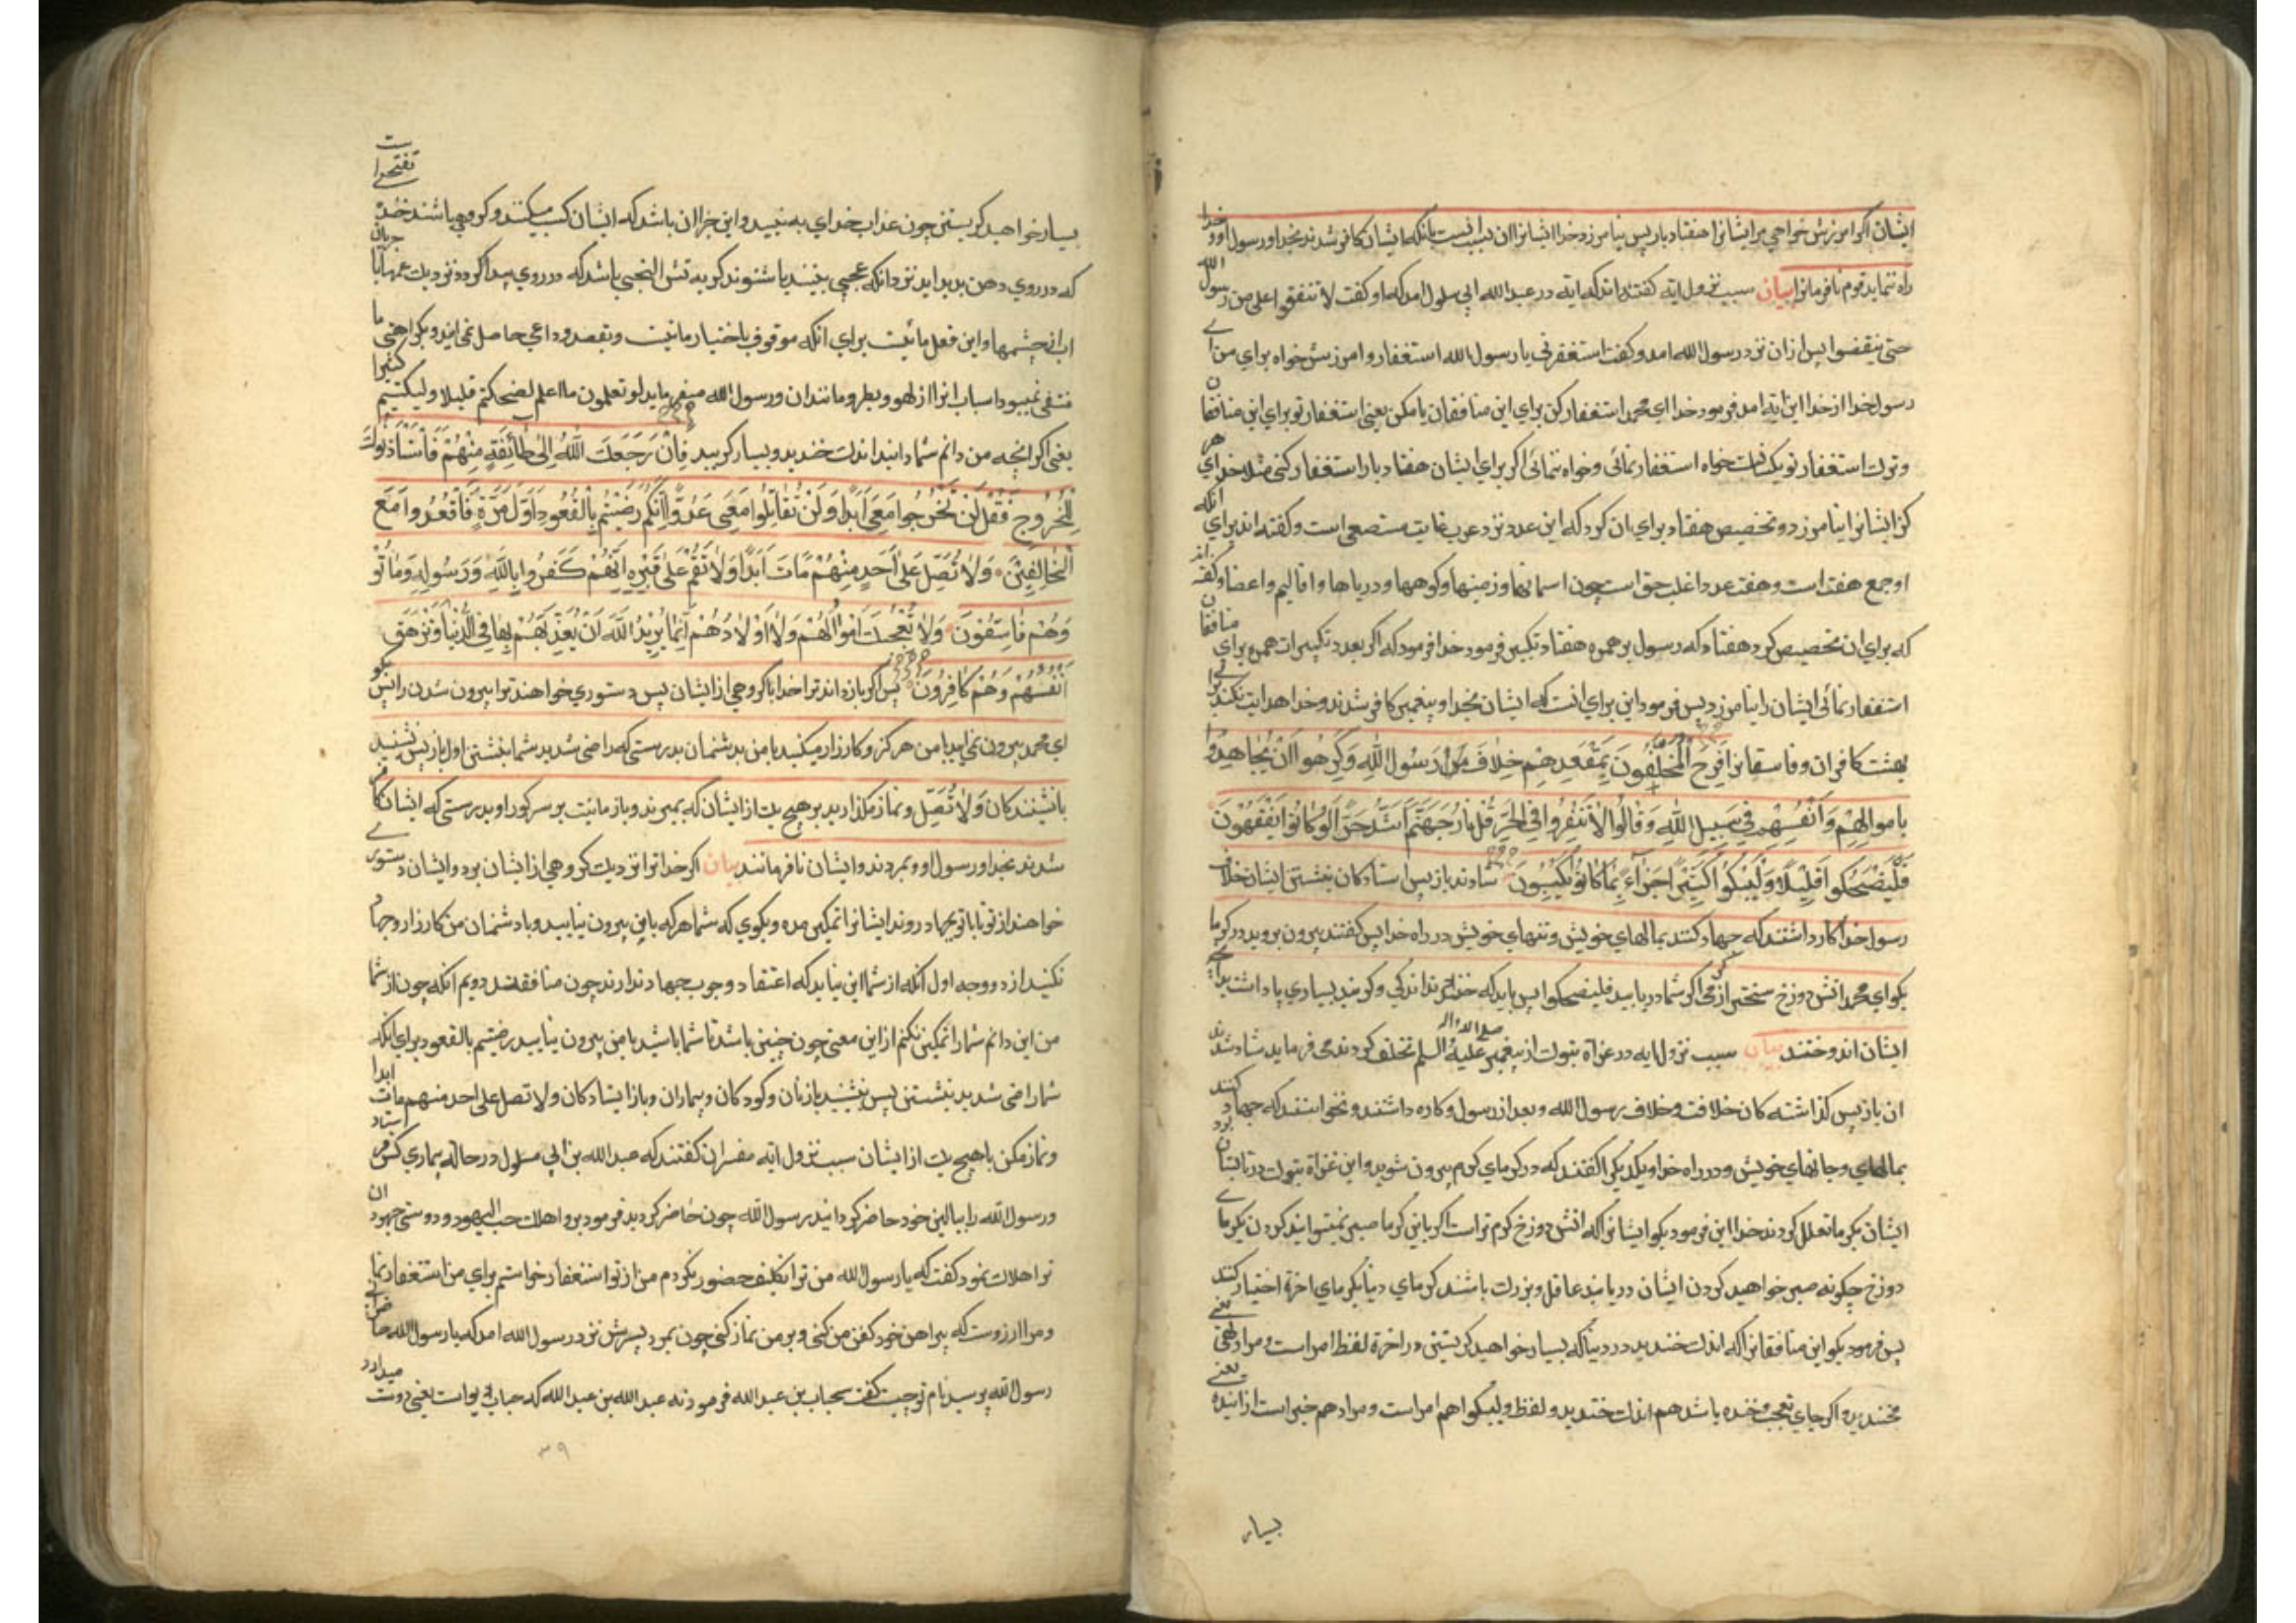 ایشان اگر امرزش خواهی مر ایشانرا هفتاد بار پس نیامرزد خدا ایشانرا ان بسبب انست بانکه ایشان کافر شدند بخدا و رسول او و خدا
راه ننماید قوم نافرمانرا بیان سبب نزول ایه کفته اند که ایه در عبد الله ابی سلول امد که او کفت لا تنفقوا علی من رسول الله
حتی ینفضوا پس ازان نزد رسول الله امد و کفت استغفرنی یا رسول الله استغفار و امرزش خواه برای من ای
رسول خدا از خدا این ایه امد فرمود خدا ای محمد استغفار کن برای این منافقان یا مکن یعنی استغفار تو برای این منافقان
و ترک استغفار تو یکسانست خواه استغفار نمائی و خواه ننمائی اگر برای ایشان هفتاد بار استغفار کنی مثلا خدای هر
کز ایشانرا نیامرزد و تخصیص هفتاد برای ان کرد که این عدد نزد عرب غایت مستصعی است و کفته اند برای انکه
او جمع هفت است و هفت عدد اغلب حق است چون اسمانها و زمینها و کوهها و دریاها و اقالیم و اعضا و کفته اند
که برای ان تخصیص کرد هفتاد که رسول بر حمزه هفتاد تکبیر فرمود خدا فرمود که اگر بعدد تکبیرات حمزه برای منافقان
استغفار نمائی ایشان را نیامرزد پس فرمود این برای انست که ایشان بخدا و پیغمبر کافر شدند و خدا هدایت نکند
بهشت کافران و فاسقانرا فَرِحَ الْمُخَلَّفُونَ بِمَقْعَدِهِمْ خِلَافَ رَسُولِ اللَّهِ وَكَرِهُوا أَنْ يُجَاهِدُوا
بِأَمْوَالِهِمْ وَأَنْفُسِهِمْ فِي سَبِيلِ اللَّهِ وَقَالُوا لَا تَنْفِرُوا فِي الْحَرِّ قُلْ نَارُ جَهَنَّمَ أَشَدُّ حَرًّا لَوْ كَانُوا يَفْقَهُونَ
فَلْيَضْحَكُوا قَلِيلًا وَلْيَبْكُوا كَثِيرًا جَزَاءً بِمَا كَانُوا يَكْسِبُونَ شادند بازپس استادکان بنشستن ایشان خلاف
رسول خدا کاره داشتند که جهاد کنند بمالهای خویش و تنهای خویش در راه خدا پس کفتند بیرون مروید در کرما
بکو ای محمد اتش دوزخ سختر از کرمی اگر شما دریابید فلیضحکوا پس باید که خندند اندکی و کریند بسیاری پاداشت بدانچه
ایشان اندوختند بیان سبب نزول ایه در غزاة تبوک از پیغمبر صلی الله علیه واله السلم تخلف کردند می فرماید شاد شدند
ان بازپس کذاشته کان خلافت و خلاف رسول الله و بعد از رسول و کاره داشتند و نخواستند که جهاد کنند
بمالهای و جانهای خویش و در راه خدا و یکدیکر را کفتند که در کرمای کرم بیرون مشوید و این غزاة تبوک در تابستان بود
ایشان بکرما تعلل کردند خدا این فرمود بکو ایشانرا که اتش دوزخ کرم تر است اگر باین کرما صبر نمیتوانید کردن بکرمای
دوزخ چکونه صبر خواهید کردن ایشان دریابند عاقل و بزرک باشند کرمای دنیا بکرمای اخرة اختیار کنند
پس فرمود بکو این منافقانرا که اندک خندید در دنیا که بسیار خواهید کریستن در اخرة لفظ امر است و مراد نهی یعنی
مخندید و اگر جای تعجب و خنده باشد هم اندک خندید و لفظ ولیبکوا هم امر است و مراد هم خبر است از اینده یعنی
بسیار
بسیار خواهید کریستن چون عذاب خدای به بینید و این جزا ان باشد که ایشان کسب میکنند و کروهی باشند خنده
که در روی دهن پدید اید نزد انکه عجبی بینند یا شنوند کریه تنش التجبی باشد که در روی پیدا کردد نزدیک غمها با جریان
اب از چشمها و این فعل ما نیست برای انکه موقوف باختیار ما نیست و بقصد و داعی حاصل نمی اید و بکراهتی ما
منتفی نمیبود اسباب انرا از لهو و بطر و مانند ان و رسول الله میفرماید لو تعلمون ما اعلم لضحکتم قلیلا و لبکیتم کثیرا
یعنی اگر انچه من دانم شما دانید اندک خندید و بسیار کریید فَإِنْ رَجَعَكَ اللَّهُ إِلَى طَائِفَةٍ مِنْهُمْ فَاسْتَأْذَنُوكَ
لِلْخُرُوجِ فَقُلْ لَنْ تَخْرُجُوا مَعِيَ أَبَدًا وَلَنْ تُقَاتِلُوا مَعِيَ عَدُوًّا إِنَّكُمْ رَضِيتُمْ بِالْقُعُودِ أَوَّلَ مَرَّةٍ فَاقْعُدُوا مَعَ
الْخَالِفِينَ وَلَا تُصَلِّ عَلَى أَحَدٍ مِنْهُمْ مَاتَ أَبَدًا وَلَا تَقُمْ عَلَى قَبْرِهِ إِنَّهُمْ كَفَرُوا بِاللَّهِ وَرَسُولِهِ وَمَاتُوا
وَهُمْ فَاسِقُونَ وَلَا تُعْجِبْكَ أَمْوَالُهُمْ وَلَا أَوْلَادُهُمْ إِنَّمَا يُرِيدُ اللَّهُ أَنْ يُعَذِّبَهُمْ بِهَا فِي الدُّنْيَا وَتَزْهَقَ
أَنْفُسُهُمْ وَهُمْ كَافِرُونَ پس اگر باز داند ترا خدا با کروهی از ایشان پس دستوری خواهند ترا بیرون شدن را پس بکو
ای محمد بیرون نمی ایید با من هرکز و کارزار میکنید با من بدشمنان بدرستی که راضی شدید شما بنشستن اول بار پس نشینید
با نشینندکان وَلَا تُصَلِّ و نماز مکذارید بر هیچ یک از ایشان که بمیرند و باز مایست بر سر کور او بدرستی که ایشان کافر
شدند بخدا و رسول او و بمردند و ایشان نافرمانند بیان اگر خدا ترا نزدیک کروهی از ایشان برد و ایشان دستوری
خواهند از تو تا با تو بجهاد روند ایشانرا تمکین مده و بکوی که شما هرکه با من بیرون نیایید و با دشمنان من کارزار و جهاد
نکنید از دو وجه اول انکه از شما این نیاید که اعتقاد وجوب جهاد ندارند چون منافقند دویم انکه چون از شما
من این دانم شما را تمکین نکنم از این معنی چون چنین باشد تا شما باشید با من بیرون نیایید رضیتم بالقعود برای انکه
شما راضی شدید بنشستن پس بنشینید با زنان و کودکان و بیماران و بازایستادکان و لا تصل علی احد منهم مات ابدا
و نماز مکن با هیچ یک از ایشان سبب نزول ایه مفسران کفتند که عبد الله بن ابی سلول در حاله بیماری کس فرستاد
و رسول الله را ببالین خود حاضر کردانید رسول الله چون حاضر کردید فرمود برو اهلک حب الیهود و دوستی جهودان
ترا هلاک نمود کفت که یا رسول الله من ترا تکلیف حضور نکردم من از تو استغفار خواستم برای من استغفار نمای
و مرا ارزوست که پیراهن خود کفن من کنی و بر من نماز کنی چون بمرد پسرش نزد رسول الله امد که یا رسول الله
رسول الله پرسید نام تو چیست کفت حباب بن عبد الله فرمود نه عبد الله بن عبد الله که حباب دیو است یعنی دوست میدارد
۳۹